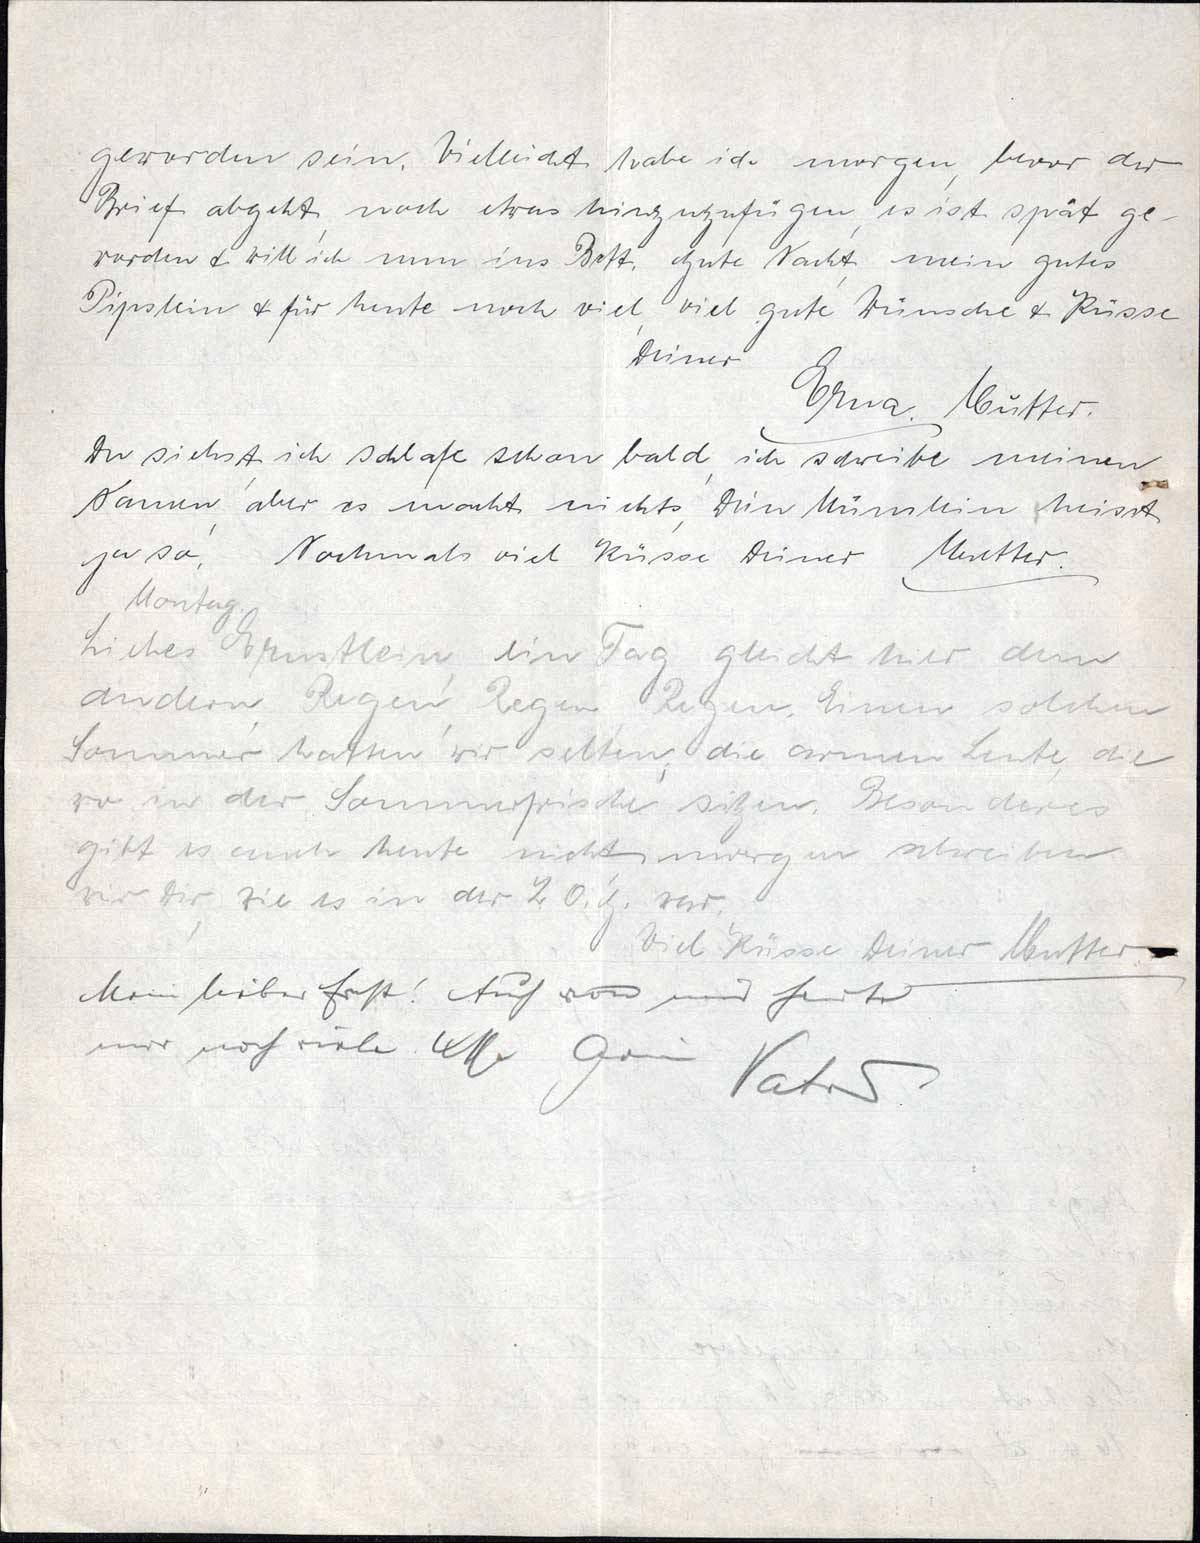 geworden sein. Vielleicht habe ich morgen, bevor der
Brief abgeht, noch etwas hinzuzufügen, es ist spät ge-
worden & will ich nun ins Bett. Gute Nacht, mein gutes
Pipslein & für heute noch viel, viel gute Wünsche & Küsse
Deiner
Erna. Mutter.
Du siehst, ich schlafe schon bald, ich schreibe meinen
Namen, aber es macht nichts, Dein Mümlein heisst
ja so. Nochmals viel Küsse Deiner Mutter.
Montag.
Liebes Ernstlein, ein Tag gleicht hier dem
andern, Regen, Regen, Regen. Einen solchen
Sommer hatten wir selten, die armen Leute, die
wo in der Sommerfrische sitzen. Besonderes
gibt es auch heute nicht, morgen schreiben
wir Dir, wie es in der Z. O. G. war.
Viel Küsse Deiner Mutter.
Mein lieber Ernst! Auch von mir heute
nur noch viele Dein Vater